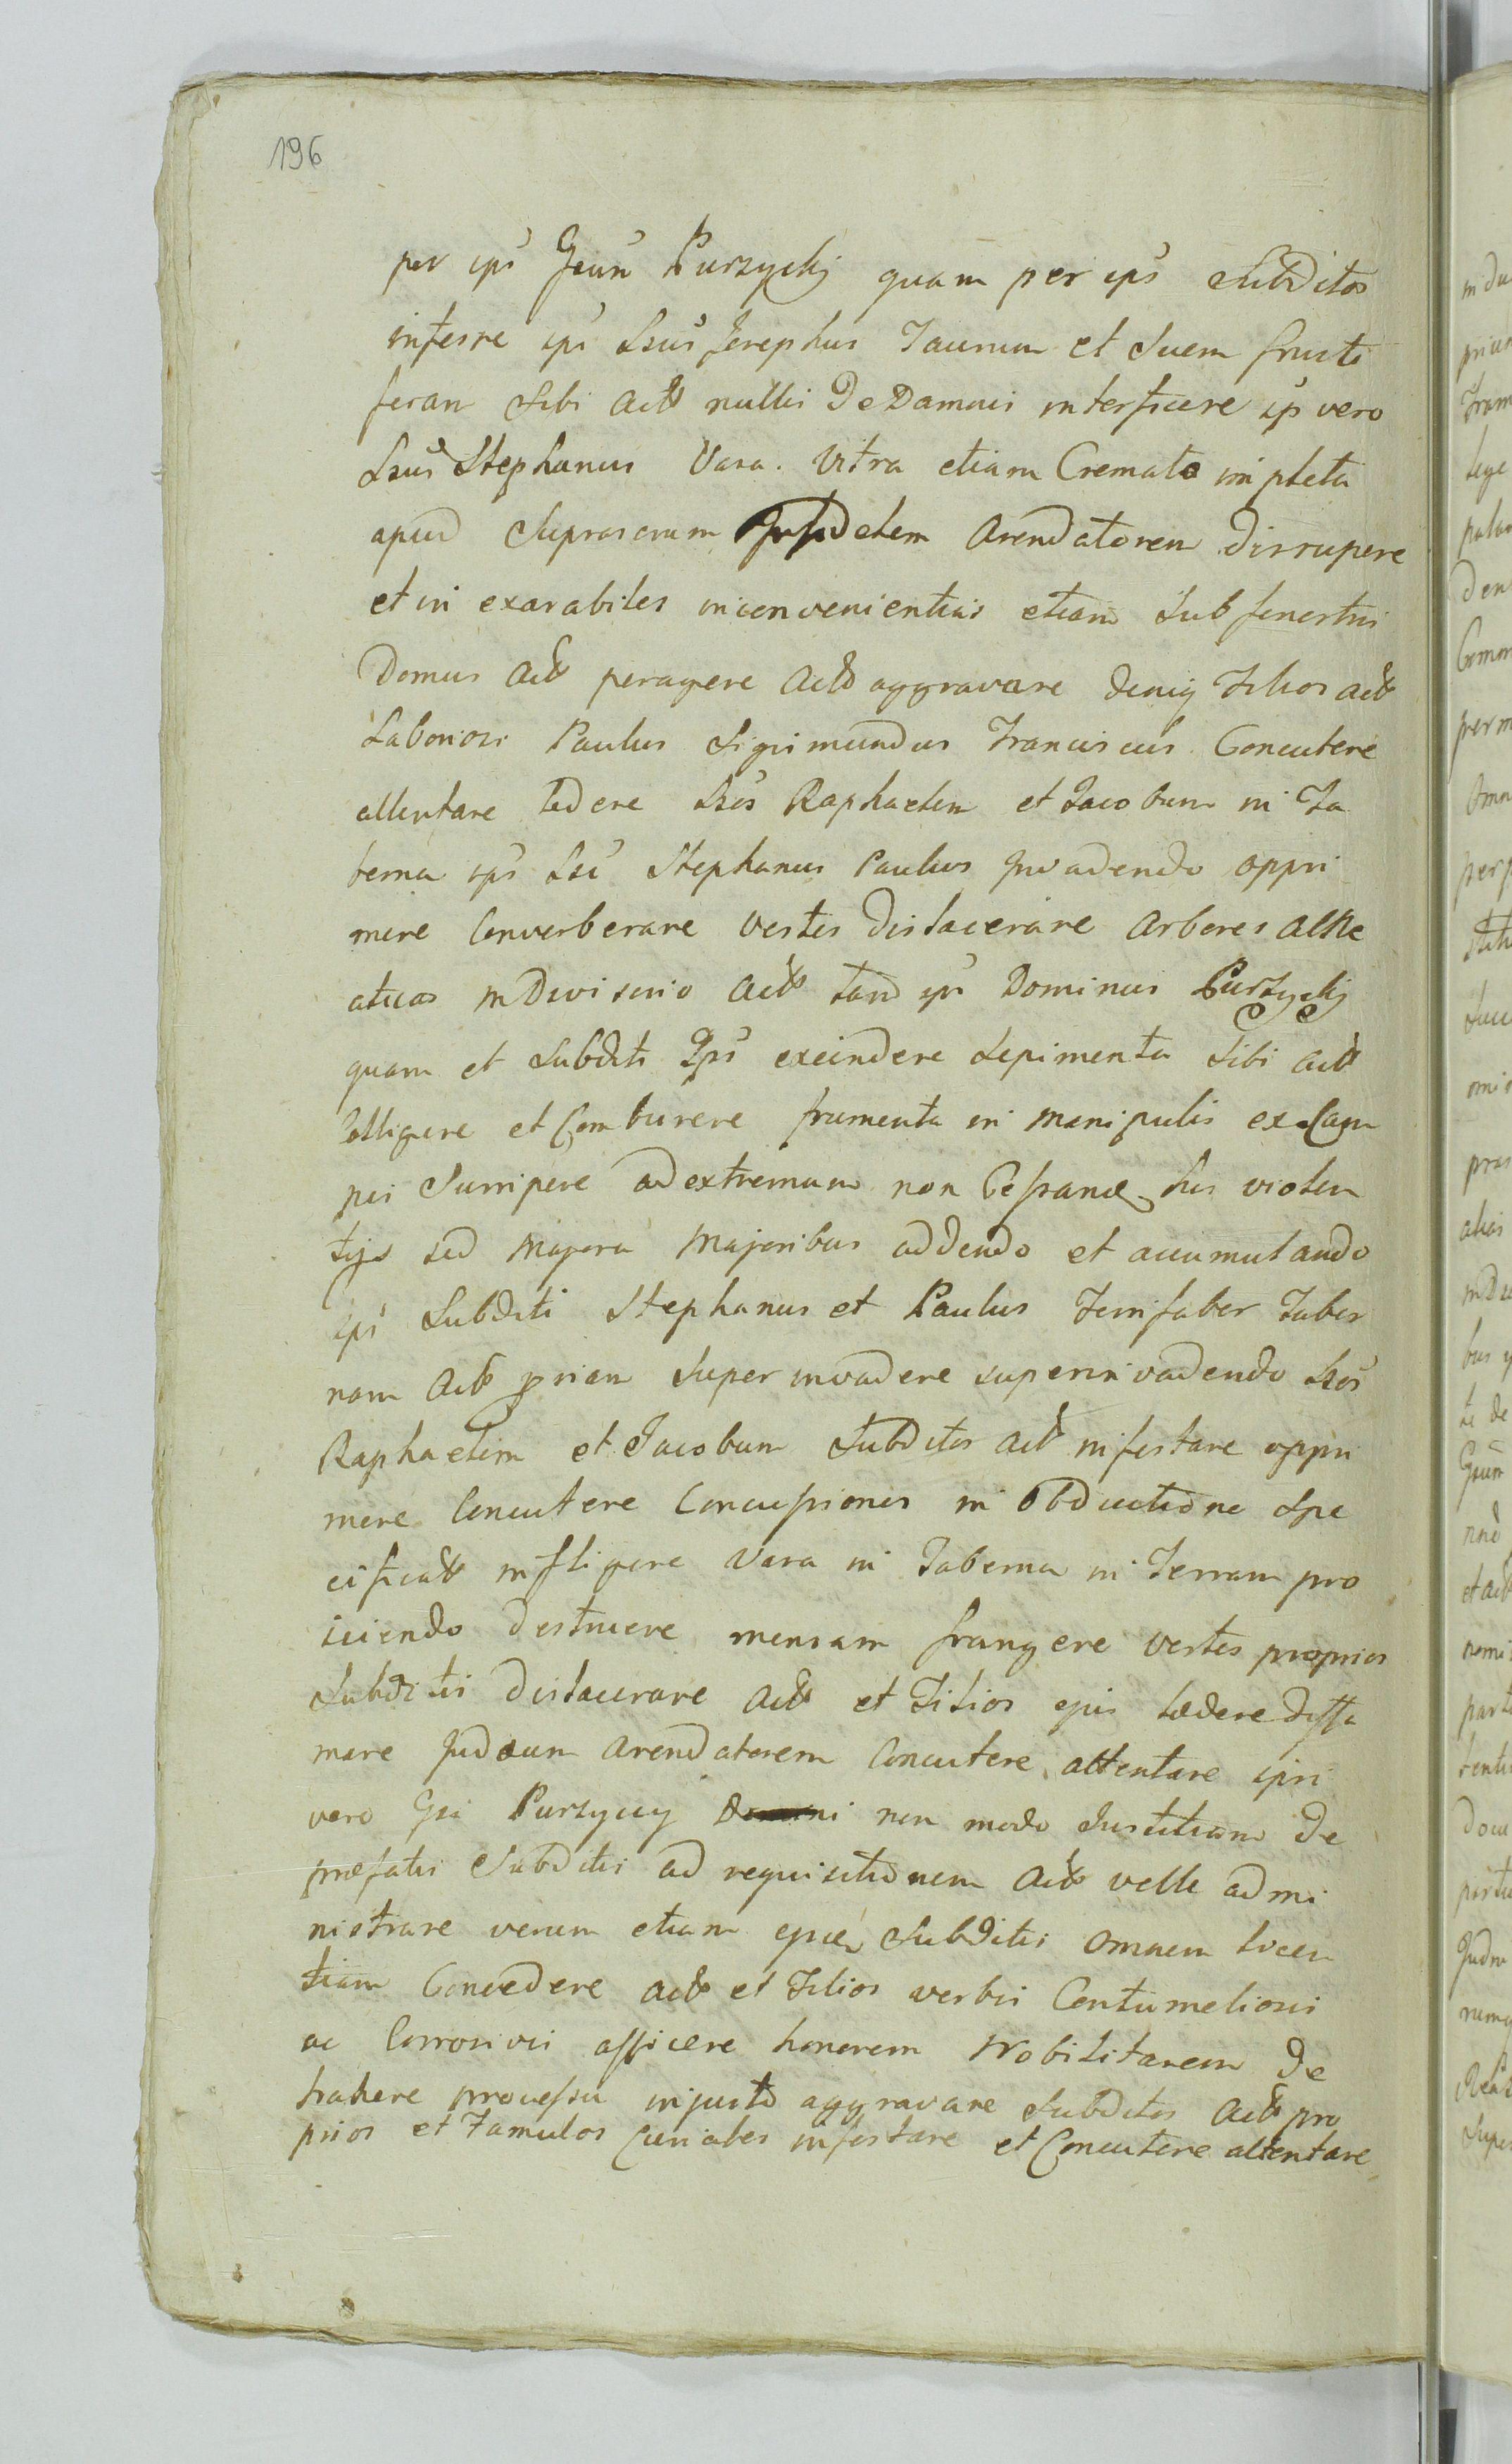 196
per ips Gsum Purzycki quam per ips Subditos
inferre ips Lsus Josephus Taurum et Suem fructi
feran Sibi actb nullis De Damnis interficere ips vero
Lsus Stephanus Vasa. Vitra etiam Cremato impleta
apud Suprascrum Infidelem Arendatorem Dirrupere
et in exarabiles inconvenientias etiam Sub fenestris
Domus actb peragere actb aggravare deniq Filios actb
Laboriosi Paulus Sigismundus Franciscus Concutere
attentare ledere Lsos Raphaelem et Jacobum in Ta
berna ips Lsi Stephanus Paulus Invadendo oppri
mere Converberare vestes dislacerare Arbores Alve
aticas in Divisorio actb tam ips Dominus Purzycki
quam et Subditi Ips excindere Sepimenta Sibi actb
Colligere et Comburere frumenta in manipulis ex Cam
pis Surripere ad extremum non Cessand his violen
tijs sed Majora Majoribus addendo et accumulando
ips Subditi Stephanus et Paulus Ferrifaber Taber
nam actb priam Super invadere superinvadendo Lsos
Raphaelem et Jacobum Subditos actb infestare oppri
mere Concutere Concussiones in obductione Spe
cificatb infligere Vasa in Taberna in Terram pro
iiciendo destruere mensam frangere vestes proprias
Subditis dislacerare actb et Filios ejus lædere diffa
mare Judæum Arendatorem Concutere attentare ipsi
vero Gsi Purzyccy non modo Justitiam de
præfatis Subditis ad requisitionem actb velle admi
nistrare verum etiam ejus Subditis omnem licen
tiam Concedere actb et Filios verbis Contumeliosis
ac Corrosivis afficere honorem Nobilitarem de
trahere processu injusto aggravare Subditos actb pro
prios et Famulos Curiales infestare et Concutere attentare